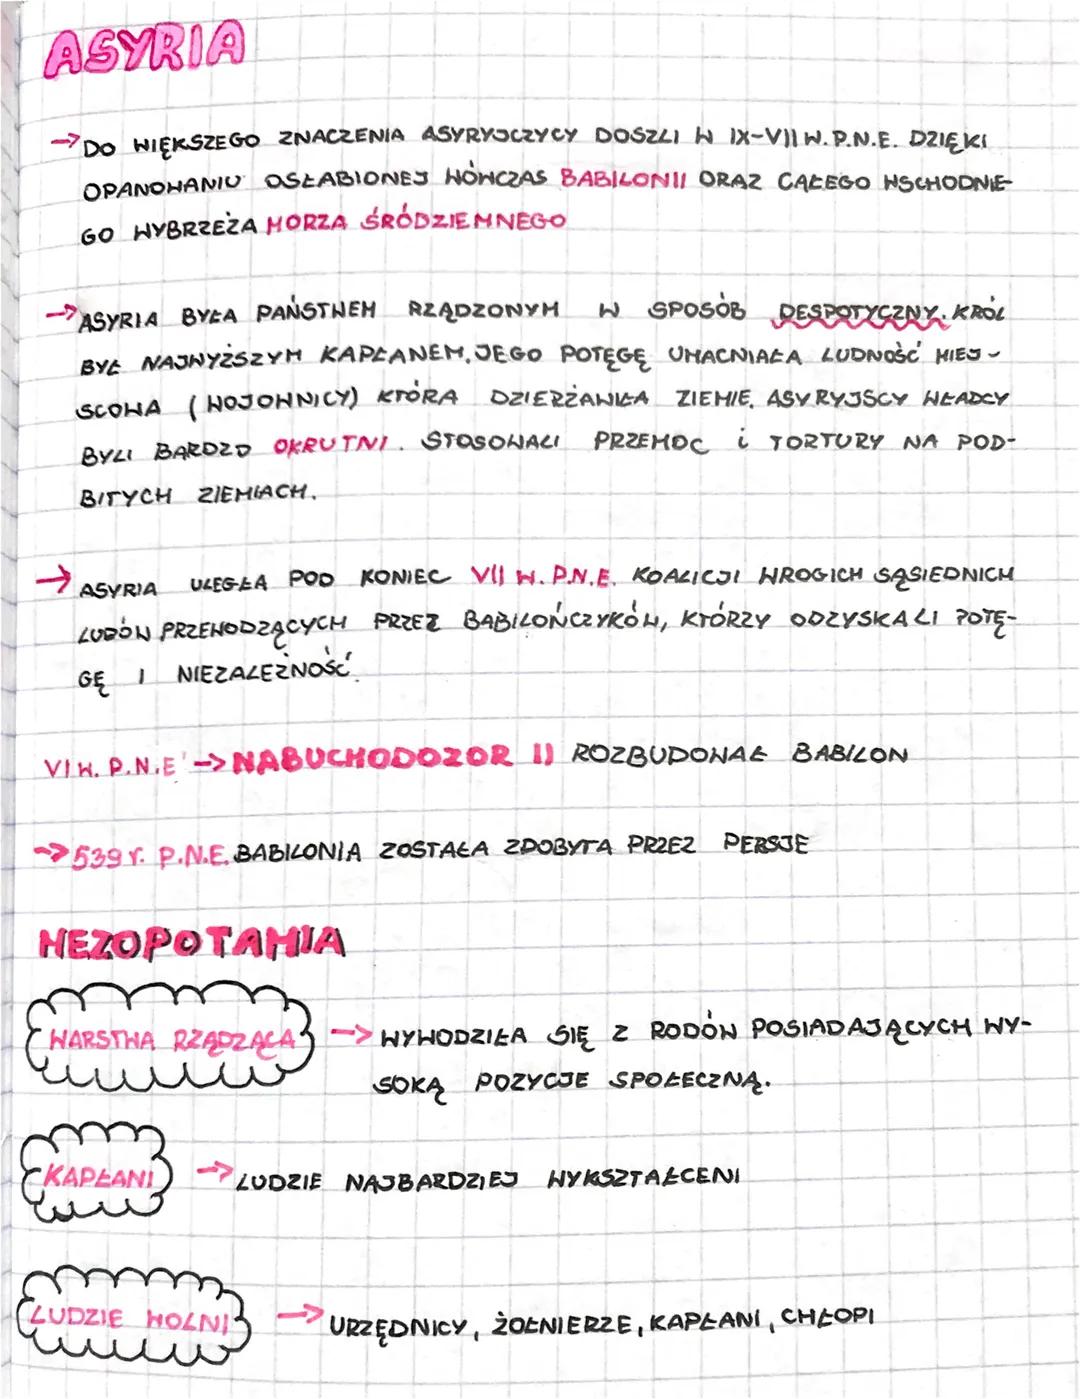 ASYRIA
→ DO WIĘKSZEGO ZNACZENIA ASYRYJCZYCY DOSZLI W IX-VII W. P.N.E. DZIĘKI
OPANOWANIU OSŁABIONEJ WÓWCZAS BABILONII ORAZ CAŁEGO WSCHODNIE-
GO WYBRZEŻA MORZA ŚRÓDZIEMNEGO
→ ASYRIA BYŁA PAŃSTWEM RZĄDZONYM W SPOSÓB DESPOTYCZNY. KRÓL
BYŁ NAJWYŻSZYM KAPŁANEM, JEGO POTĘGĘ UMACNIAŁA LUDNOŚĆ MIEJ-
SCOWA (WOJOWNICY) KTÓRA DZIERŻAWIŁA ZIEMIE. ASYRYJSCY WŁADCY
BYLI BARDZO OKRUTNI. STOSOWALI PRZEMOC i TORTURY NA POD-
BITYCH ZIEMIACH.
→ ASYRIA ULEGŁA POD KONIEC VII W. P.N.E. KOALICJI WROGICH SĄSIEDNICH
LUDÓW PRZEWODZĄCYCH PRZEZ BABILOŃCZYKÓW, KTÓRZY ODZYSKALI POTĘ-
GĘ I NIEZALEŻNOŚĆ.
VI W. P.N.E → NABUCHODOZOR II ROZBUDOWAŁ BABILON
→ 539 r. P.N.E. BABILONIA ZOSTAŁA ZDOBYTA PRZEZ PERSJE
MEZOPOTAMIA
WARSTWA RZĄDZĄCA → WYWODZIŁA SIĘ Z RODÓW POSIADAJĄCYCH WY-
SOKĄ POZYCJE SPOŁECZNĄ.
KAPŁANI → LUDZIE NAJBARDZIEJ WYKSZTAŁCENI
LUDZIE WOLNI → URZĘDNICY, ŻOŁNIERZE, KAPŁANI, CHŁOPI